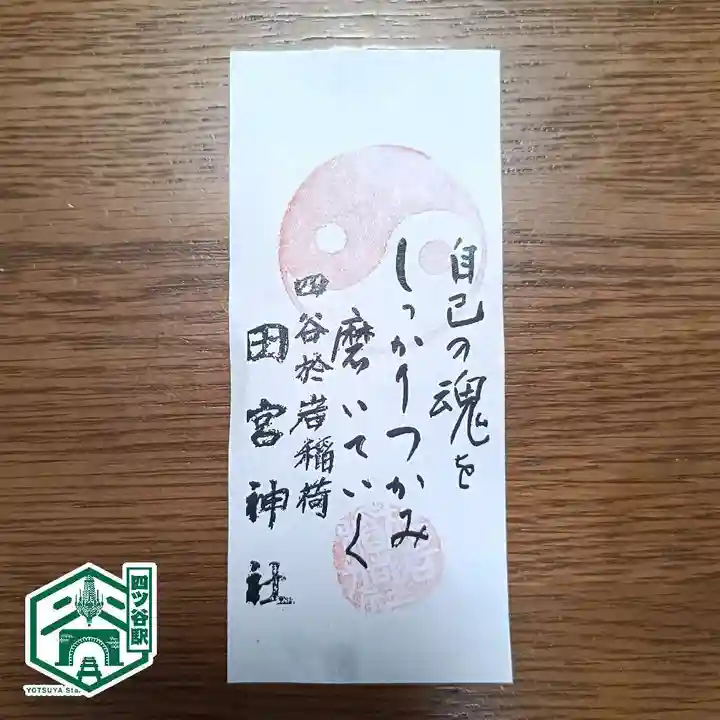 自己の魂を
しっかりつかみ
磨いていく
四谷於岩稲荷
田宮神社
四ツ谷駅
YOTSUYA Sta.